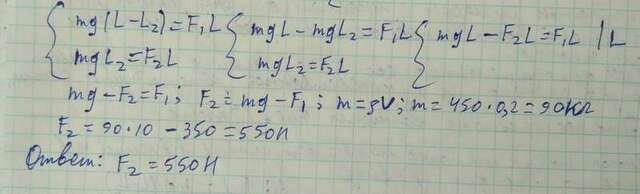 { mg(L-L₂)=F₁L { mgL-mgL₂=F₁L { mgL-F₂L=F₁L | L
mgL₂=F₂L mgL₂=F₂L
mg-F₂=F₁; F₂=mg-F₁; m=ρV; m=450·0,2=90кг
F₂=90·10-350=550Н
Ответ: F₂=550Н